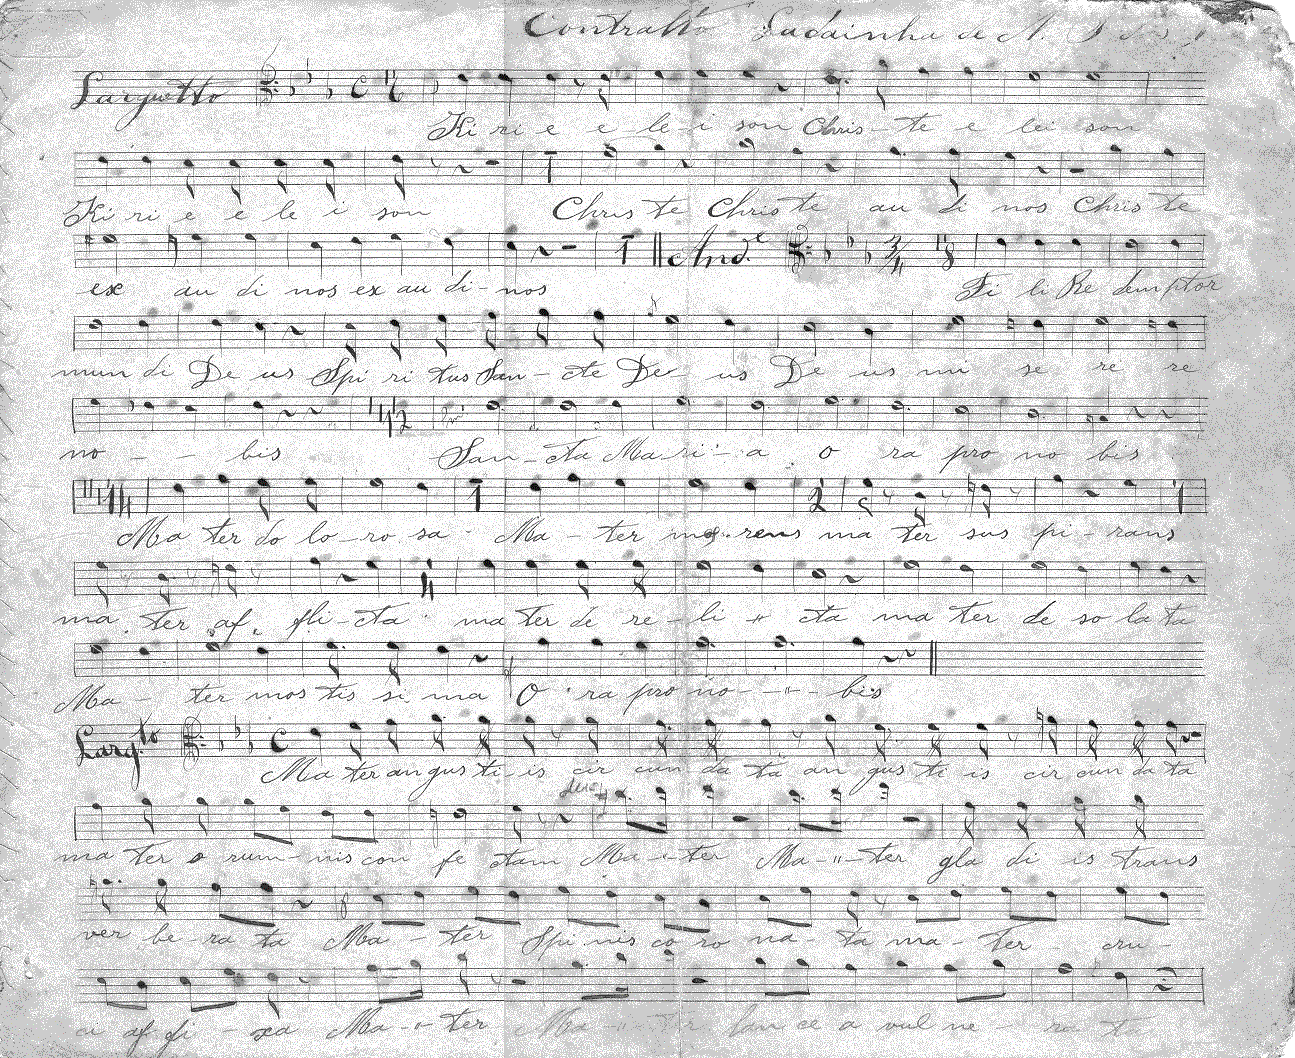 Contralto Ladainha de N. S.
Larguetto
Ki ri e e le i son Chris te e lei son
Ki ri e e le i son Chris te Chris te au di nos Chris te
And.e
ex au di nos ex au di - nos Fi li Re demptor
mun di De us Spi ri tus San - cte De us De us mi se re re
no - - bis San - cta Ma ri - a o ra pro no bis
Ma ter do lo - ro sa Ma - ter me rens ma ter sus pi - rans
ma ter af fli - cta ma ter de re - li cta ma ter de so la ta
Ma - ter mos tis si ma O ra pro no - - - bis
Larg.to
Ma ter an gus ti is cir cun da ta an gus ti is cir cun da ta
ma ter e rum - nis con fe ctam Ma - ter Ma " - ter gla di is trans
ver be - ra ta Ma - ter Spi nis co ro na - ta ma - ter - cru -
ci af fi - xa Ma - " - ter Ma - " - ter lan ce a vul ne - ra t